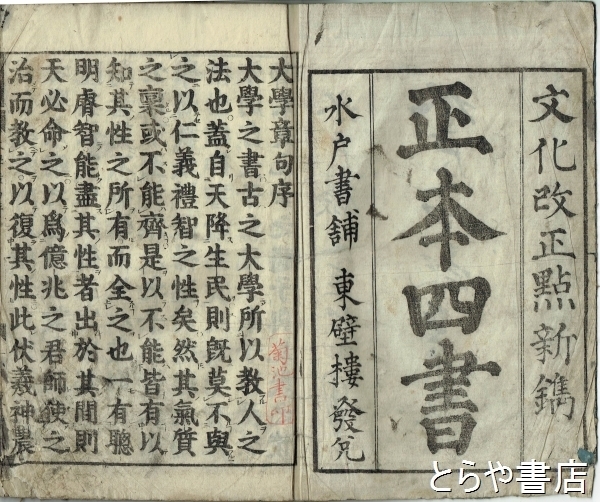 文化改正點新鐫
正本四書
水戸書舗　東壁樓發兌
大學章句序
大學之書古之大學所以教人之
法也蓋自天降生民則既莫不與
之以仁義禮智之性矣然其氣質
之稟或不能齊是以不能皆有以
知其性之所有而全之也一有聰
明睿智能盡其性者出於其間則
天必命之以爲億兆之君師使之
治而教之以復其性此伏羲神農
菊池書印
とらや書店